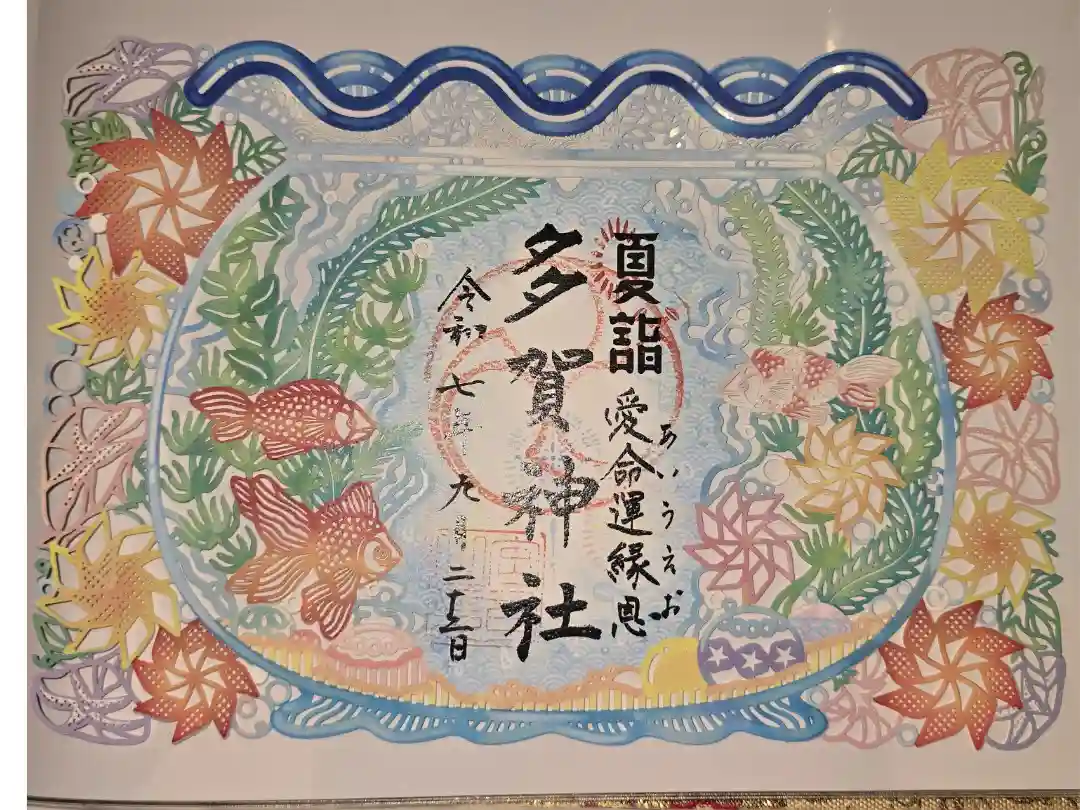 夏詣 愛命運縁恩
あいうえお
多賀神社
令和七年九月二十三日